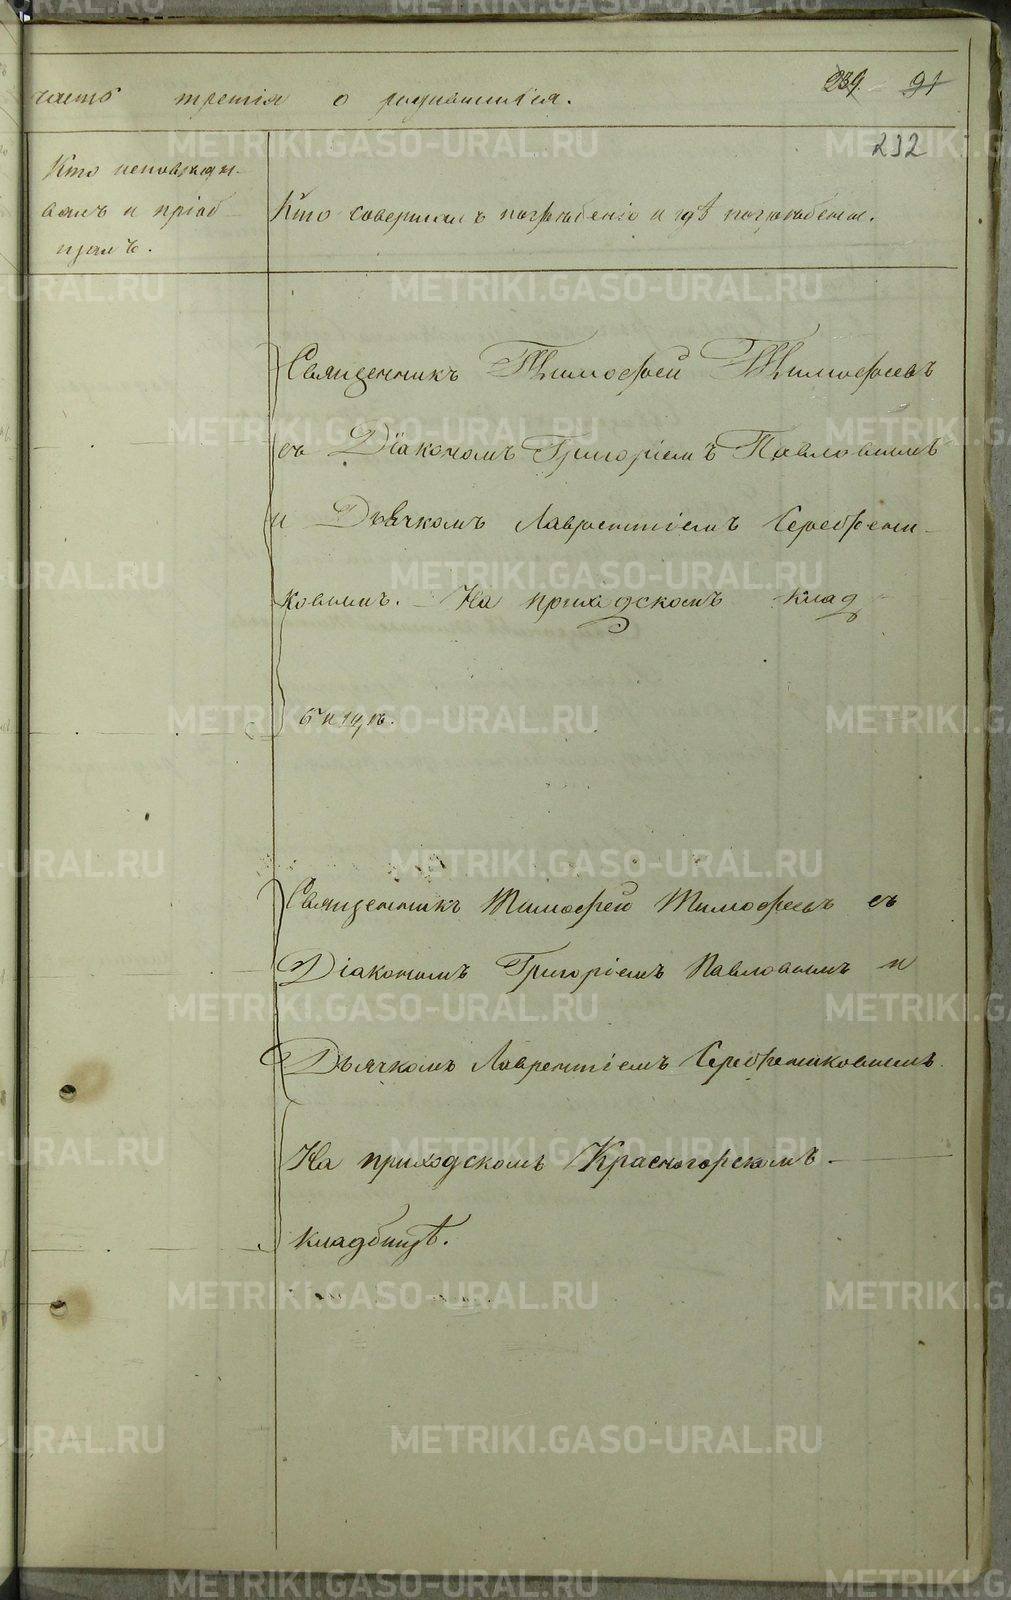 часть третія о родившихся.
239 91
232
Кто исповѣды-
валъ и пріоб-
щалъ.
Кто совершалъ погребеніе и гдѣ погребены.
Священникъ Тимофей Тимофеевъ
съ Діакономъ Григоріемъ Павловымъ
и Дьячкомъ Лаврентіемъ Серебрени-
ковымъ. – На приходскомъ клад-
бищѣ.
Священникъ Тимофей Тимофеевъ съ
Діакономъ Григоріемъ Павловымъ и
Дьячкомъ Лаврентіемъ Серебрениковымъ.
На приходскомъ Красногорскомъ –
кладбищѣ.
METRIKI.GASO-URAL.RU